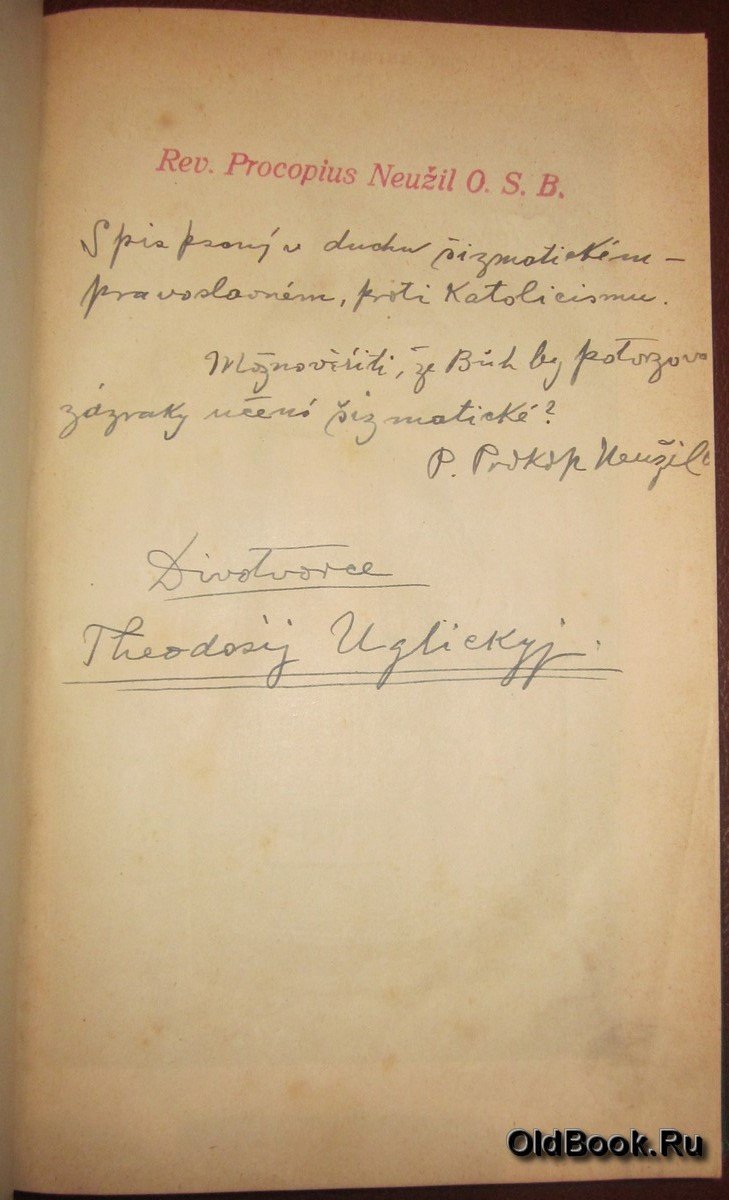 Rev. Procopius Neužil O. S. B.
Spis psaný v duchu šizmatickém –
pravoslavném, proti Katolicismu.
Možno věřiti, že Bůh by potvrzova
zázraky učení šizmatické?
P. Prokop Neužil
Divotvorce
Theodosij Uglickyj.
OldBook.Ru